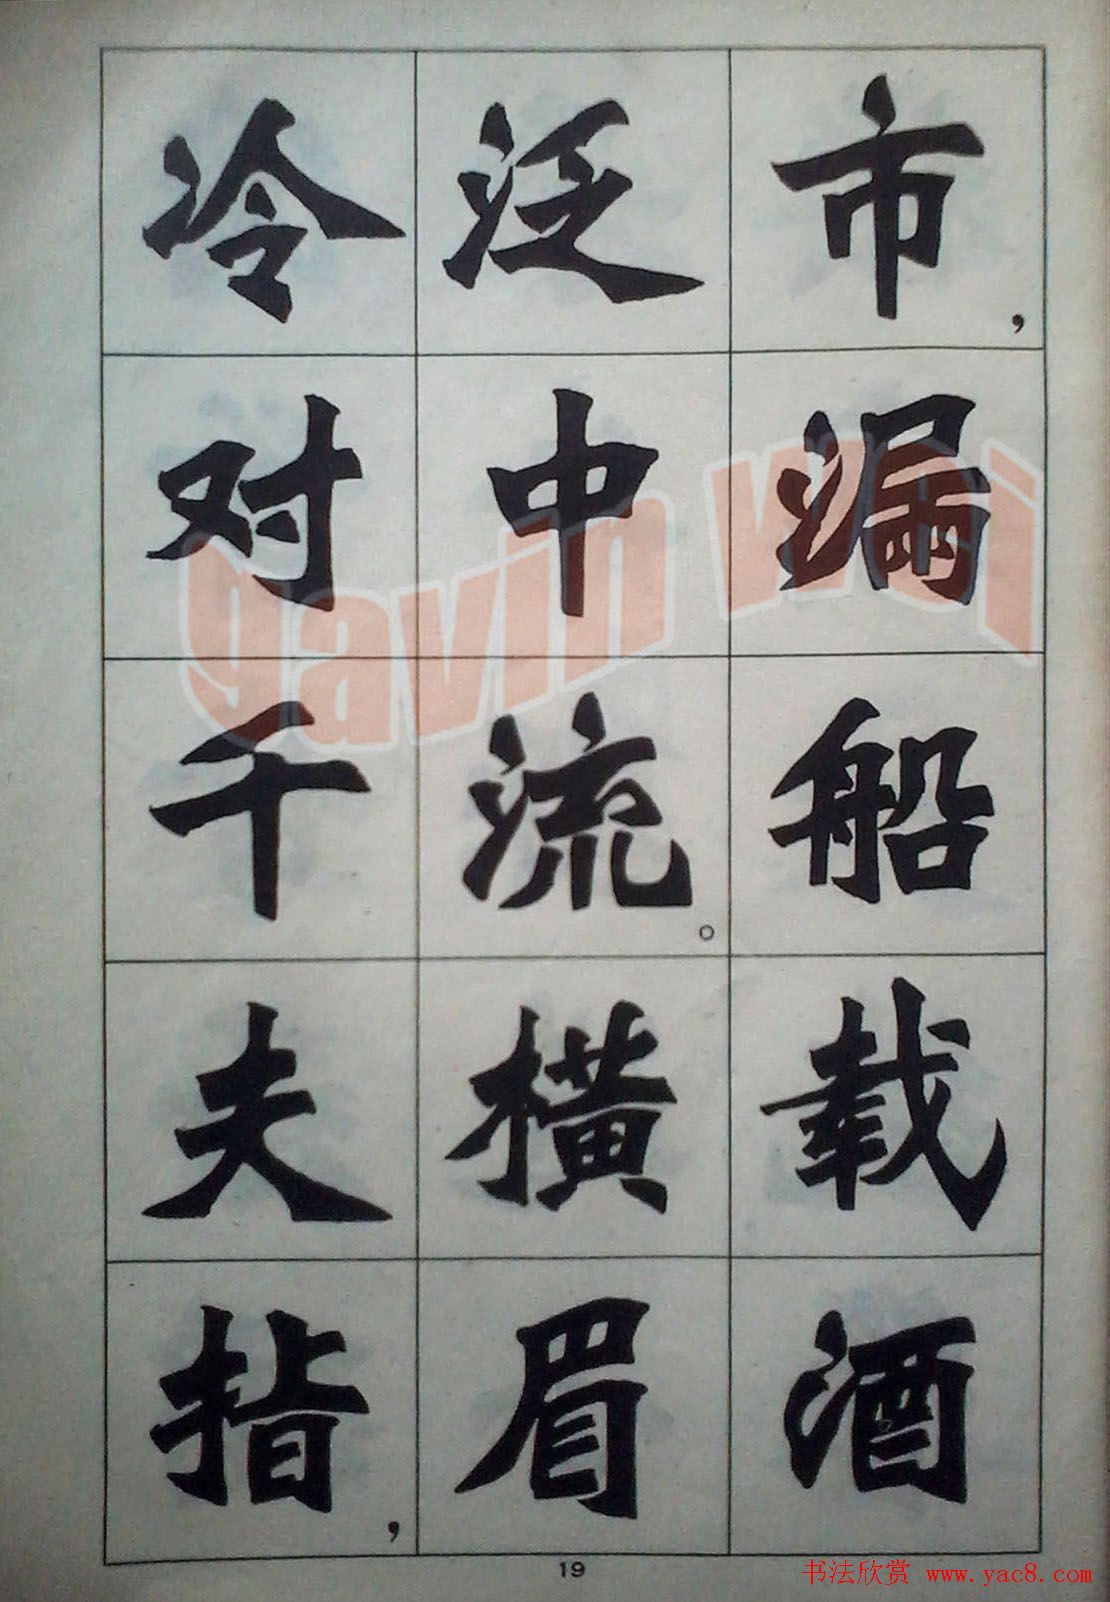 市，漏船载酒
泛中流。横眉
冷对千夫指，
gavin wei
19
书法欣赏 www.yac8.com